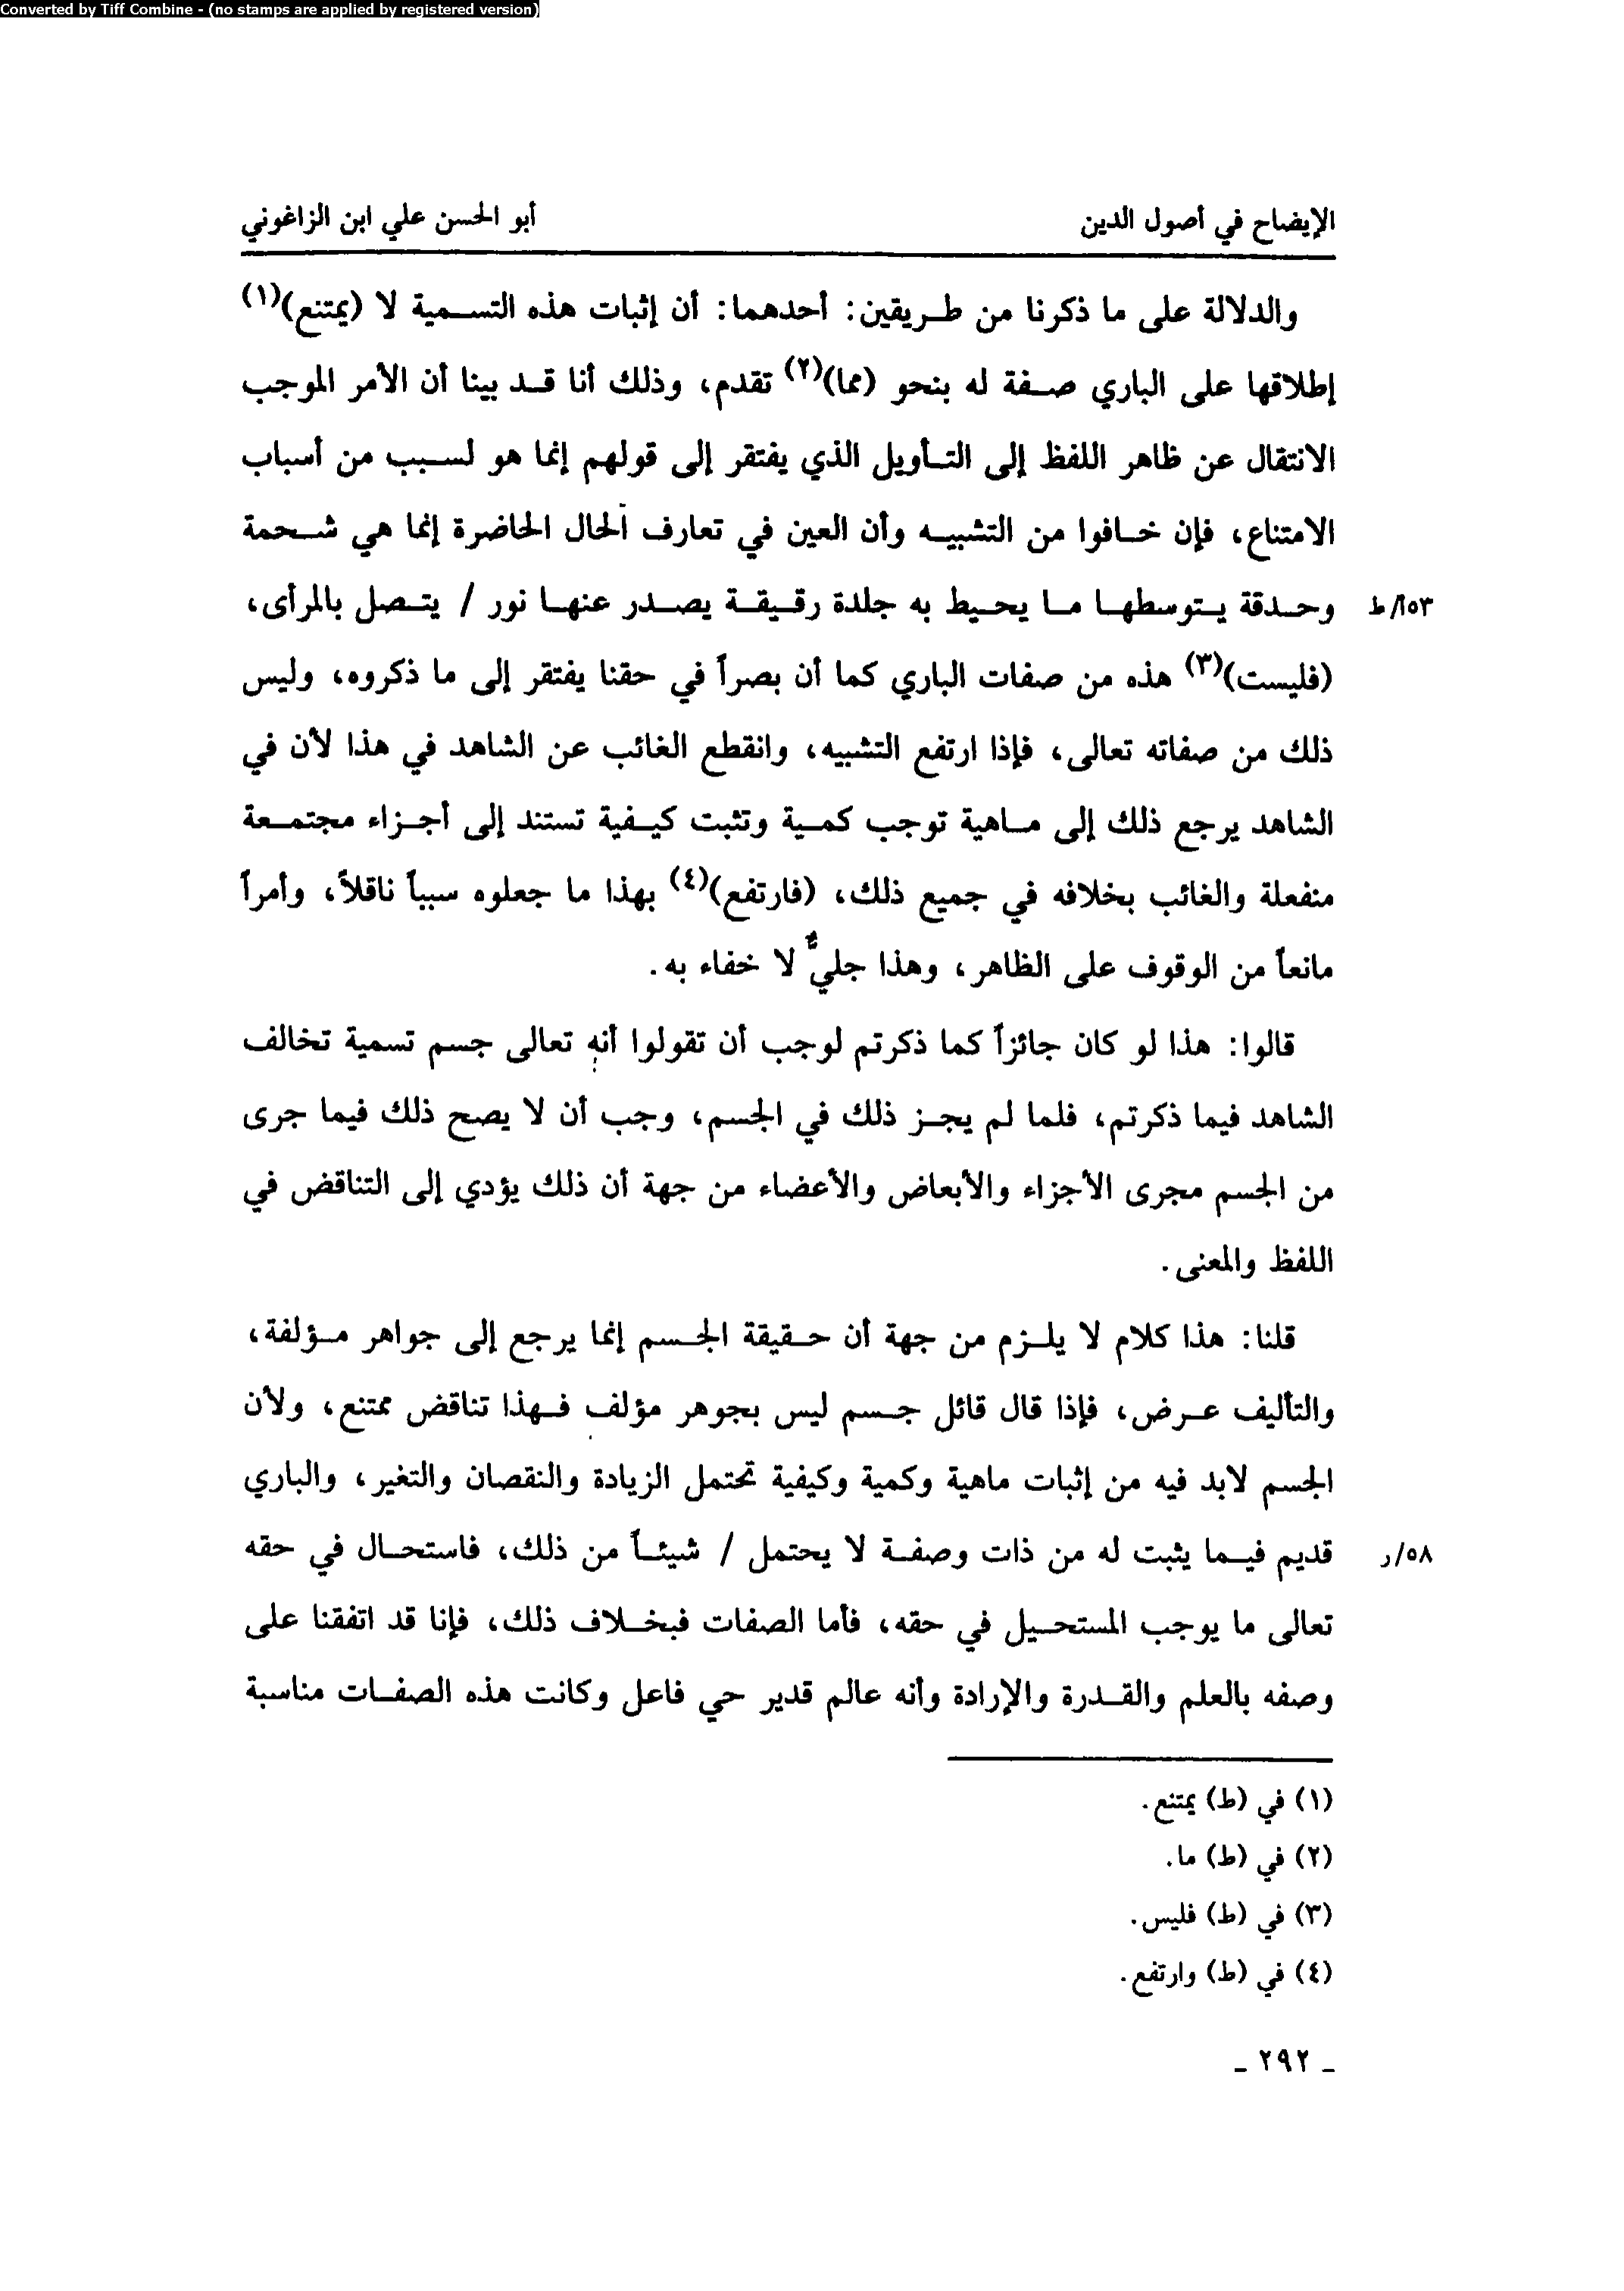 Converted by Tiff Combine - (no stamps are applied by registered version)
الإيضاح في أصول الدين
أبو الحسن علي ابن الزاغوني
والدلالة على ما ذكرنا من طريقين: أحدهما: أن إثبات هذه التسمية لا (يمتنع)(١)
إطلاقها على الباري صفة له بنحو (مما)(٢) تقدم، وذلك أنا قد بينا أن الأمر الموجب
الانتقال عن ظاهر اللفظ إلى التأويل الذي يفتقر إلى قولهم إنما هو لسبب من أسباب
الامتناع، فإن خافوا من التشبيه وأن العين في تعارف الحال الحاضرة إنما هي شحمة
وحدقة يتوسطها ما يحيط به جلدة رقيقة يصدر عنها نور / يتصل بالمرأى، ١٥٣/ط
(فليست)(٣) هذه من صفات الباري كما أن بصراً في حقنا يفتقر إلى ما ذكروه، وليس
ذلك من صفاته تعالى، فإذا ارتفع التشبيه، وانقطع الغائب عن الشاهد في هذا لأن في
الشاهد يرجع ذلك إلى ماهية توجب كمية وتثبت كيفية تستند إلى أجزاء مجتمعة
منفعلة والغائب بخلافه في جميع ذلك، (فارتفع)(٤) بهذا ما جعلوه سبباً ناقلاً، وأمراً
مانعاً من الوقوف على الظاهر، وهذا جليٌّ لا خفاء به.
قالوا: هذا لو كان جائزاً كما ذكرتم لوجب أن تقولوا أنه تعالى جسم تسمية تخالف
الشاهد فيما ذكرتم، فلما لم يجز ذلك في الجسم، وجب أن لا يصح ذلك فيما جرى
من الجسم مجرى الأجزاء والأبعاض والأعضاء من جهة أن ذلك يؤدي إلى التناقض في
اللفظ والمعنى.
قلنا: هذا كلام لا يلزم من جهة أن حقيقة الجسم إنما يرجع إلى جواهر مؤلفة،
والتأليف عرض، فإذا قال قائل جسم ليس بجوهر مؤلف فهذا تناقض ممتنع، ولأن
الجسم لابد فيه من إثبات ماهية وكمية وكيفية تحتمل الزيادة والنقصان والتغير، والباري
قديم فيما يثبت له من ذات وصفة لا يحتمل / شيئاً من ذلك، فاستحال في حقه ٥٨/ر
تعالى ما يوجب المستحيل في حقه، فأما الصفات فبخلاف ذلك، فإنا قد اتفقنا على
وصفه بالعلم والقدرة والإرادة وأنه عالم قدير حي فاعل وكانت هذه الصفات مناسبة
(١) في (ط) يمتنع.
(٢) في (ط) ما.
(٣) في (ط) فليس.
(٤) في (ط) وارتفع.
- ٢٩٢ -